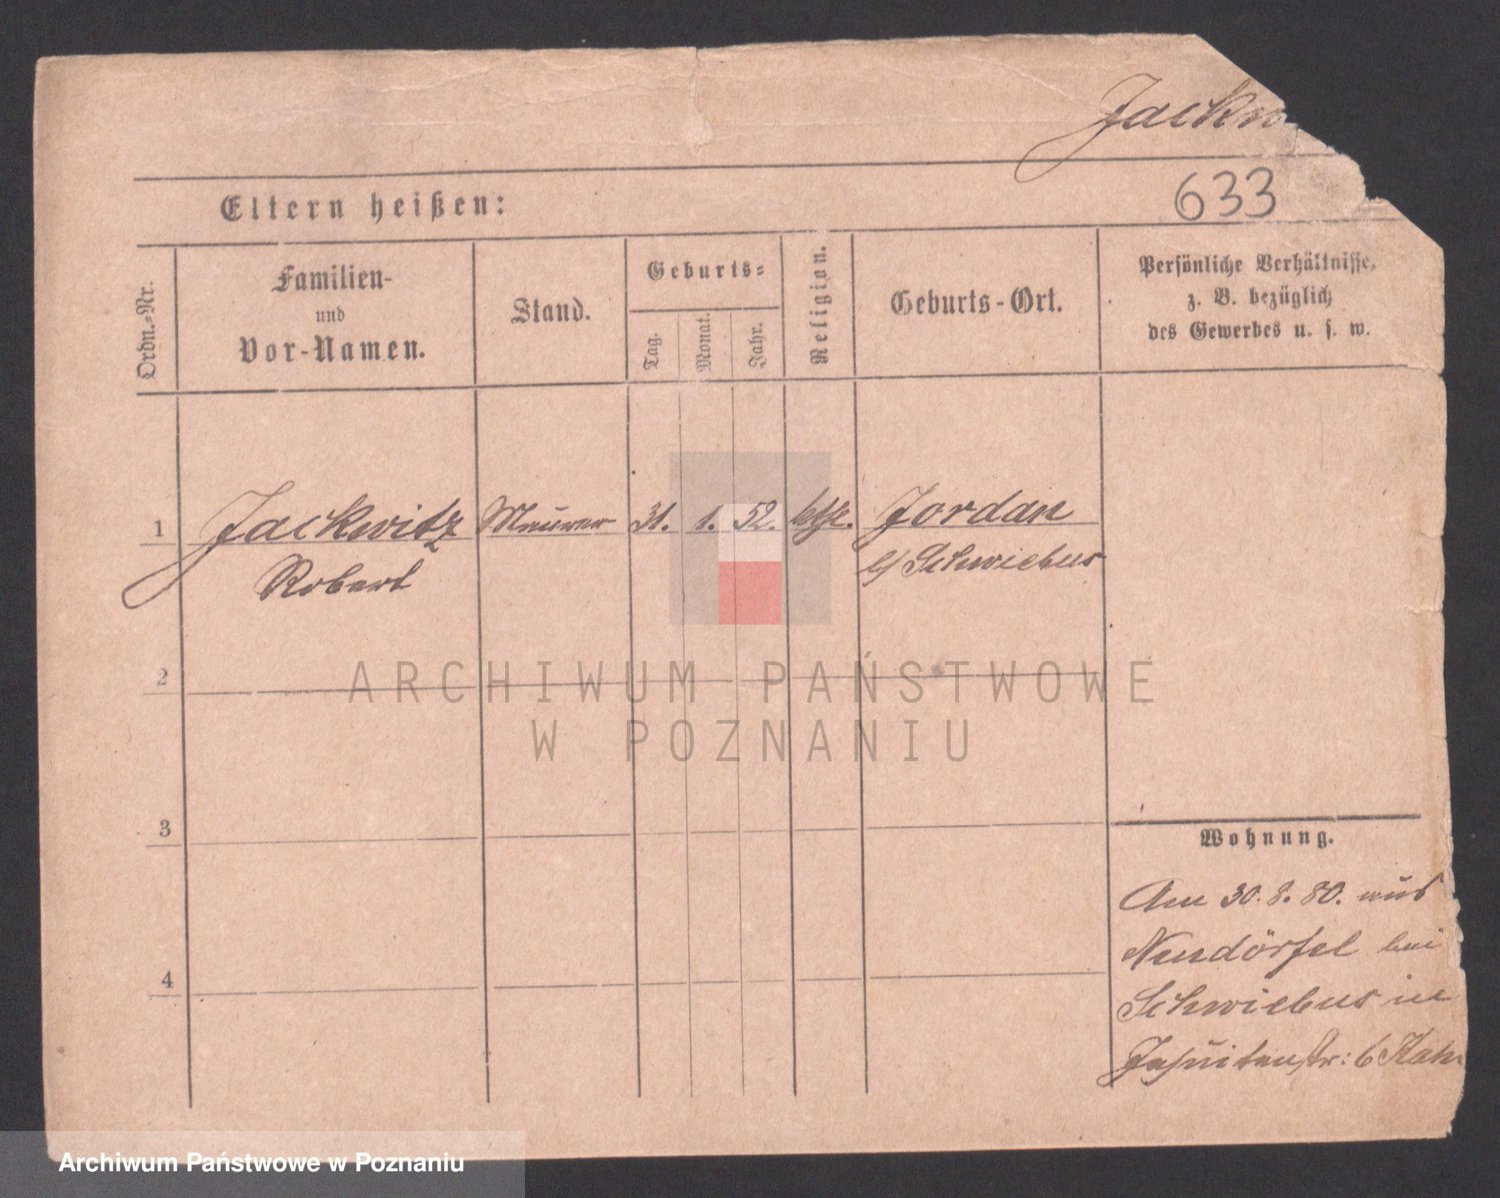 Jackw
633
Eltern heißen:
Ordn.-Nr.
Familien-
und
Vor-Namen.
Stand.
Geburts-
Tag.
Monat.
Jahr.
Religion.
Geburts-Ort.
Persönliche Verhältnisse,
z. B. bezüglich
des Gewerbes u. s. w.
1 Jackwitz Maurer 31. 1. 52. kth. Jordan
Robert b/ Schwiebus
2
3
4
Wohnung.
Am 30. 8. 80. aus
Neudörfel bei
Schwiebus in
Jesuitenstr: 6
ARCHIWUM PAŃSTWOWE
W POZNANIU
Archiwum Państwowe w Poznaniu